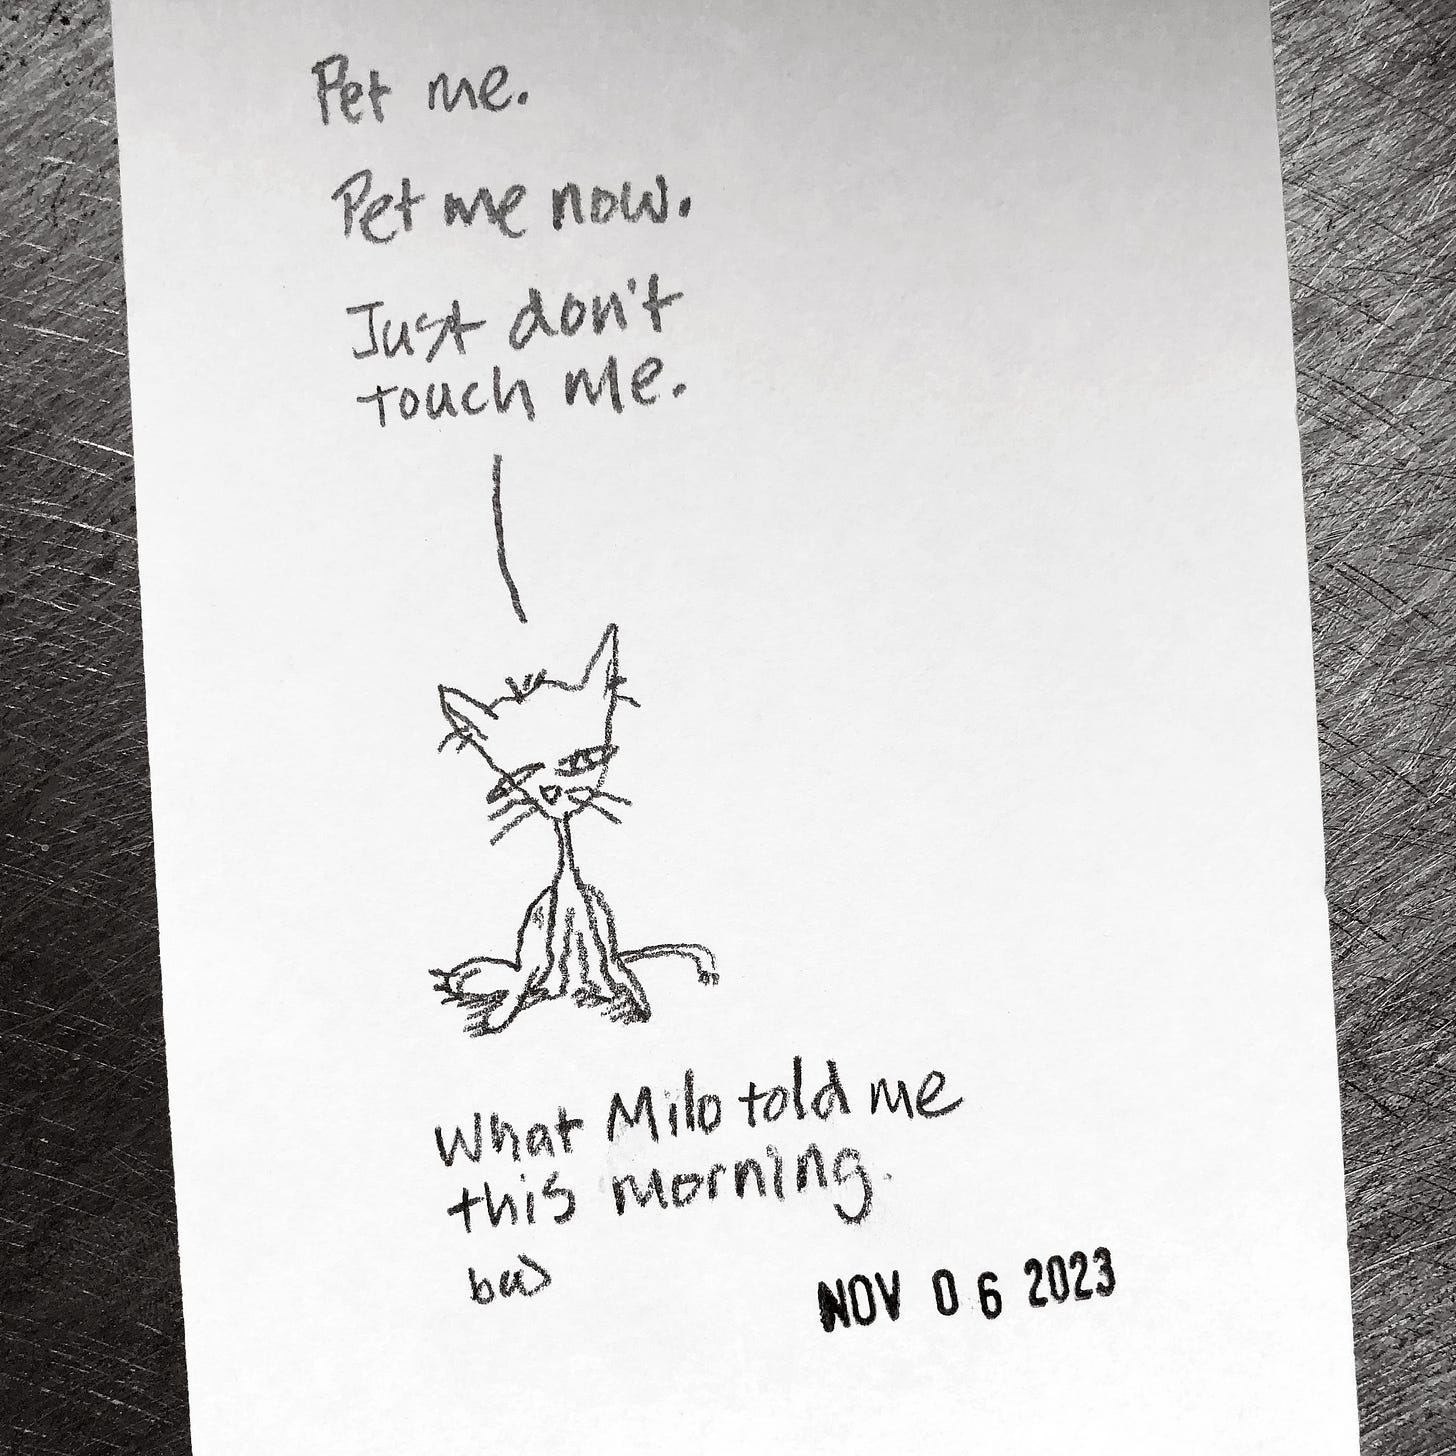 Pet me.
Pet me now.
Just don't
touch me.
What Milo told me
this morning.
NOV 06 2023